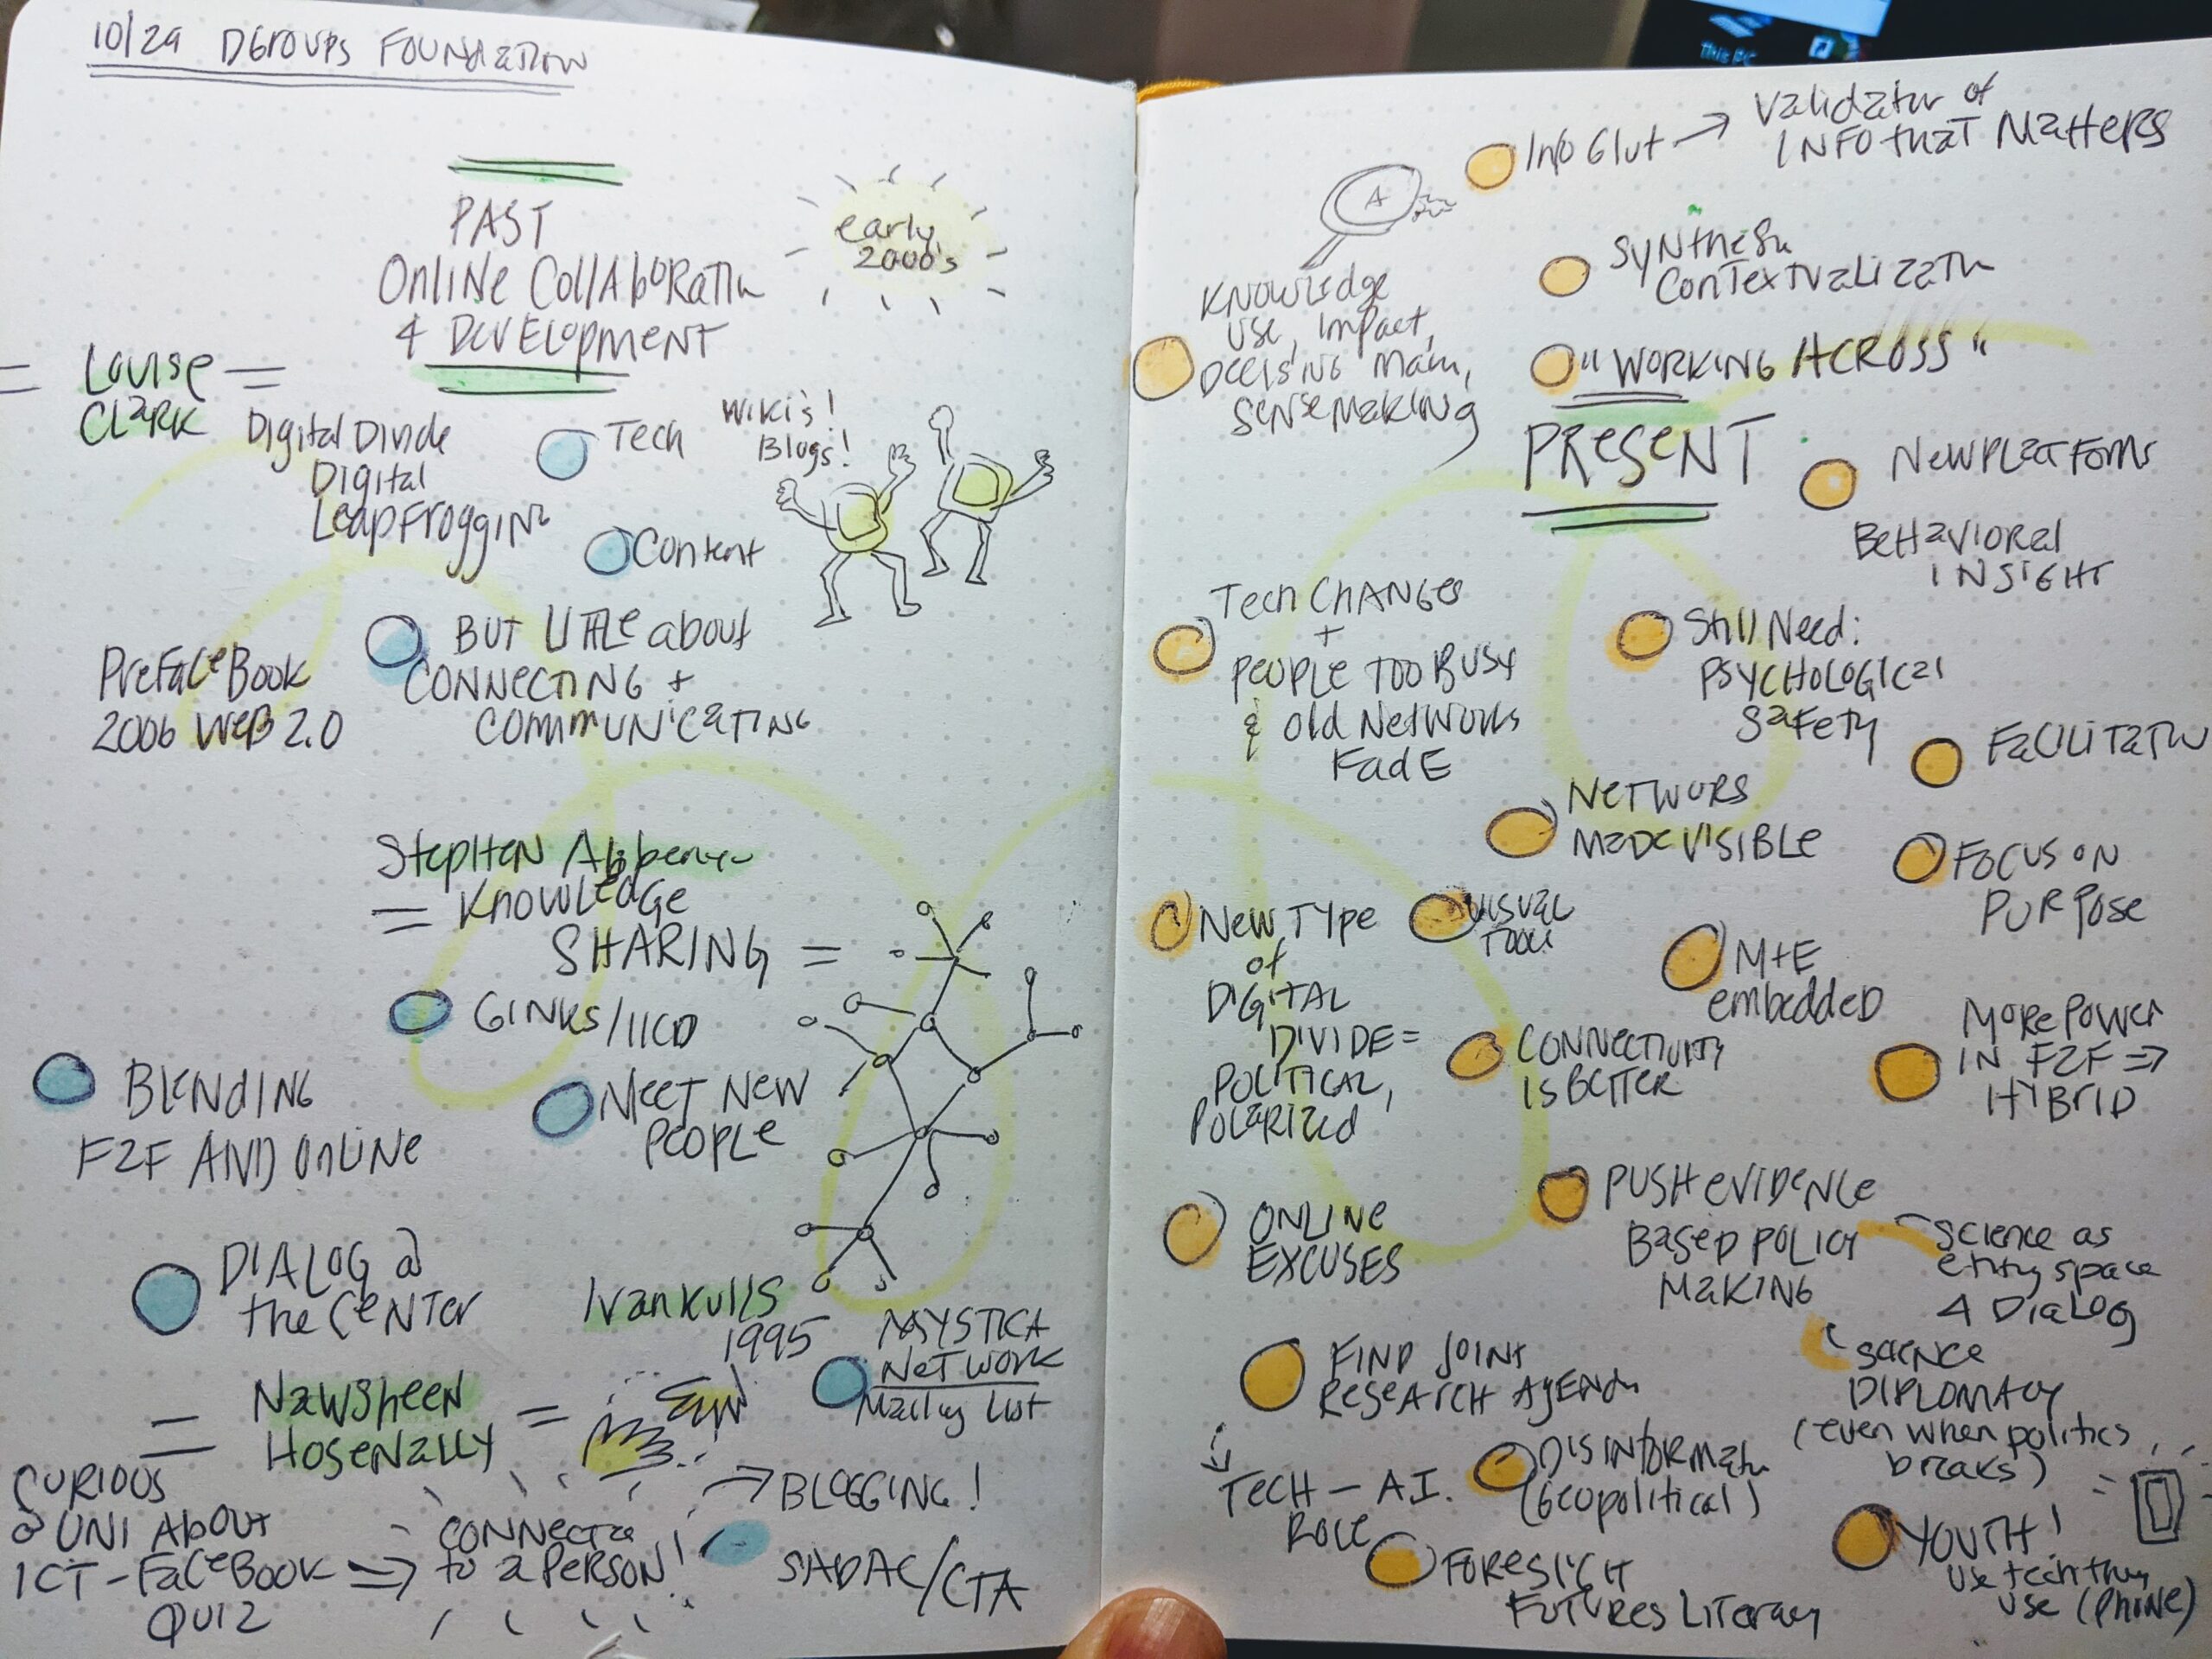 10/29 DGROUPS FOUNDATION
PAST
ONLINE COLLABORATN
& DEVELOPMENT
early
2000's
= LOUISE =
CLARK
Digital Divide
Digital
LEAPFROGGING
Tech
Wiki's!
Blogs!
Content
BUT LITTLE about
CONNECTING +
COMMUNICATING
PREFACEBOOK
2006 WEB 2.0
STEPHEN
= KNOWLEDGE
SHARING =
GINKS/IICD
BLENDING
F2F AND ONLINE
MEET NEW
PEOPLE
DIALOG @
the CENTER
1995
MYSTICA
NETWORK
Mailing List
= NAWSHEEN =
HOSENALLY
CURIOUS
@ UNI ABOUT
ICT - FACEBOOK ⇒
QUIZ
CONNECTED
to a PERSON!
→ BLOGGING!
SADAC/CTA
Info Glut → Validator of
INFO that MATTERS
A
KNOWLEDGE
USE, IMPACT,
DECISING MAKN,
SENSEMAKING
SYNTHESIS
CONTEXTUALIZATN
"WORKING ACROSS"
PRESENT
NEW PLATFORMS
BEHAVIORAL
INSIGHT
Tech CHANGES
+
PEOPLE TOO BUSY
& old NETWORKS
FADE
Still Need:
PSYCHOLOGICAL
SAFETY
FACILITATN
NETWORS
MADE VISIBLE
FOCUS ON
PURPOSE
NEW TYPE
of
DIGITAL
DIVIDE =
POLITICAL,
POLARIZED
VISUAL
TOOLS
M+E
embedded
CONNECTIVITY
IS BETTER
MORE POWER
IN F2F ⇒
HYBRID
ONLINE
EXCUSES
PUSH EVIDENCE
BASED POLICY
MAKING
SCIENCE as
entry space
4 DIALOG
SCIENCE
DIPLOMACY
(even when politics
breaks)
FIND JOINT
RESEARCH AGENDA
TECH - A.I.
ROLE
DISINFORMATN
(GEOpolitical)
FORESIGHT
FUTURES LITERACY
YOUTH!
Use tech they
use (PHONE)
This PC